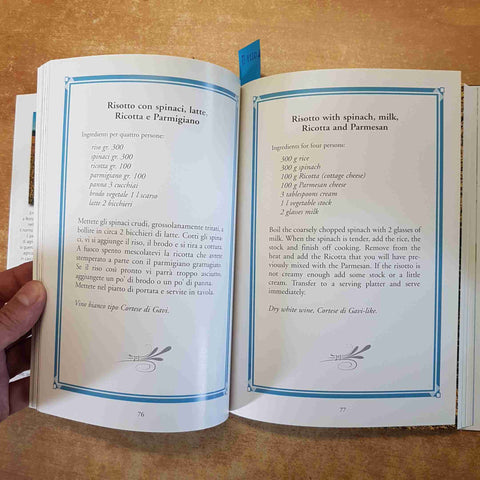 Risotto con spinaci, latte,
Ricotta e Parmigiano
Ingredienti per quattro persone:
riso gr. 300
spinaci gr. 300
ricotta gr. 100
parmigiano gr. 100
panna 3 cucchiai
brodo vegetale 1 l scarso
latte 2 bicchieri
Mettete gli spinaci crudi, grossolanamente tritati, a
bollire in circa 2 bicchieri di latte. Cotti gli spina-
ci, vi si aggiunge il riso, il brodo e si tira a cottura.
A fuoco spento mescolatevi la ricotta che avrete
stemperato a parte con il parmigiano grattugiato.
Se il riso così pronto vi parrà troppo asciutto,
aggiungete un po' di brodo o un po' di panna.
Mettete nel piatto di portata e servite in tavola.
Vino bianco tipo Cortese di Gavi.
76
Risotto with spinach, milk,
Ricotta and Parmesan
Ingredients for four persone:
300 g rice
300 g spinach
100 g Ricotta (cottage cheese)
100 g Parmesan cheese
3 tablespoons cream
1 l vegetable stock
2 glasses milk
Boil the coarsely chopped spinach with 2 glasses of
milk. When the spinach is tender, add the rice, the
stock and finish off cooking. Remove from the
heat and add the Ricotta that you will have pre-
viously mixed with the Parmesan. If the risotto is
not creamy enough add some stock or a little
cream. Transfer to a serving platter and serve
immediately.
Dry white wine, Cortese di Gavi-like.
77